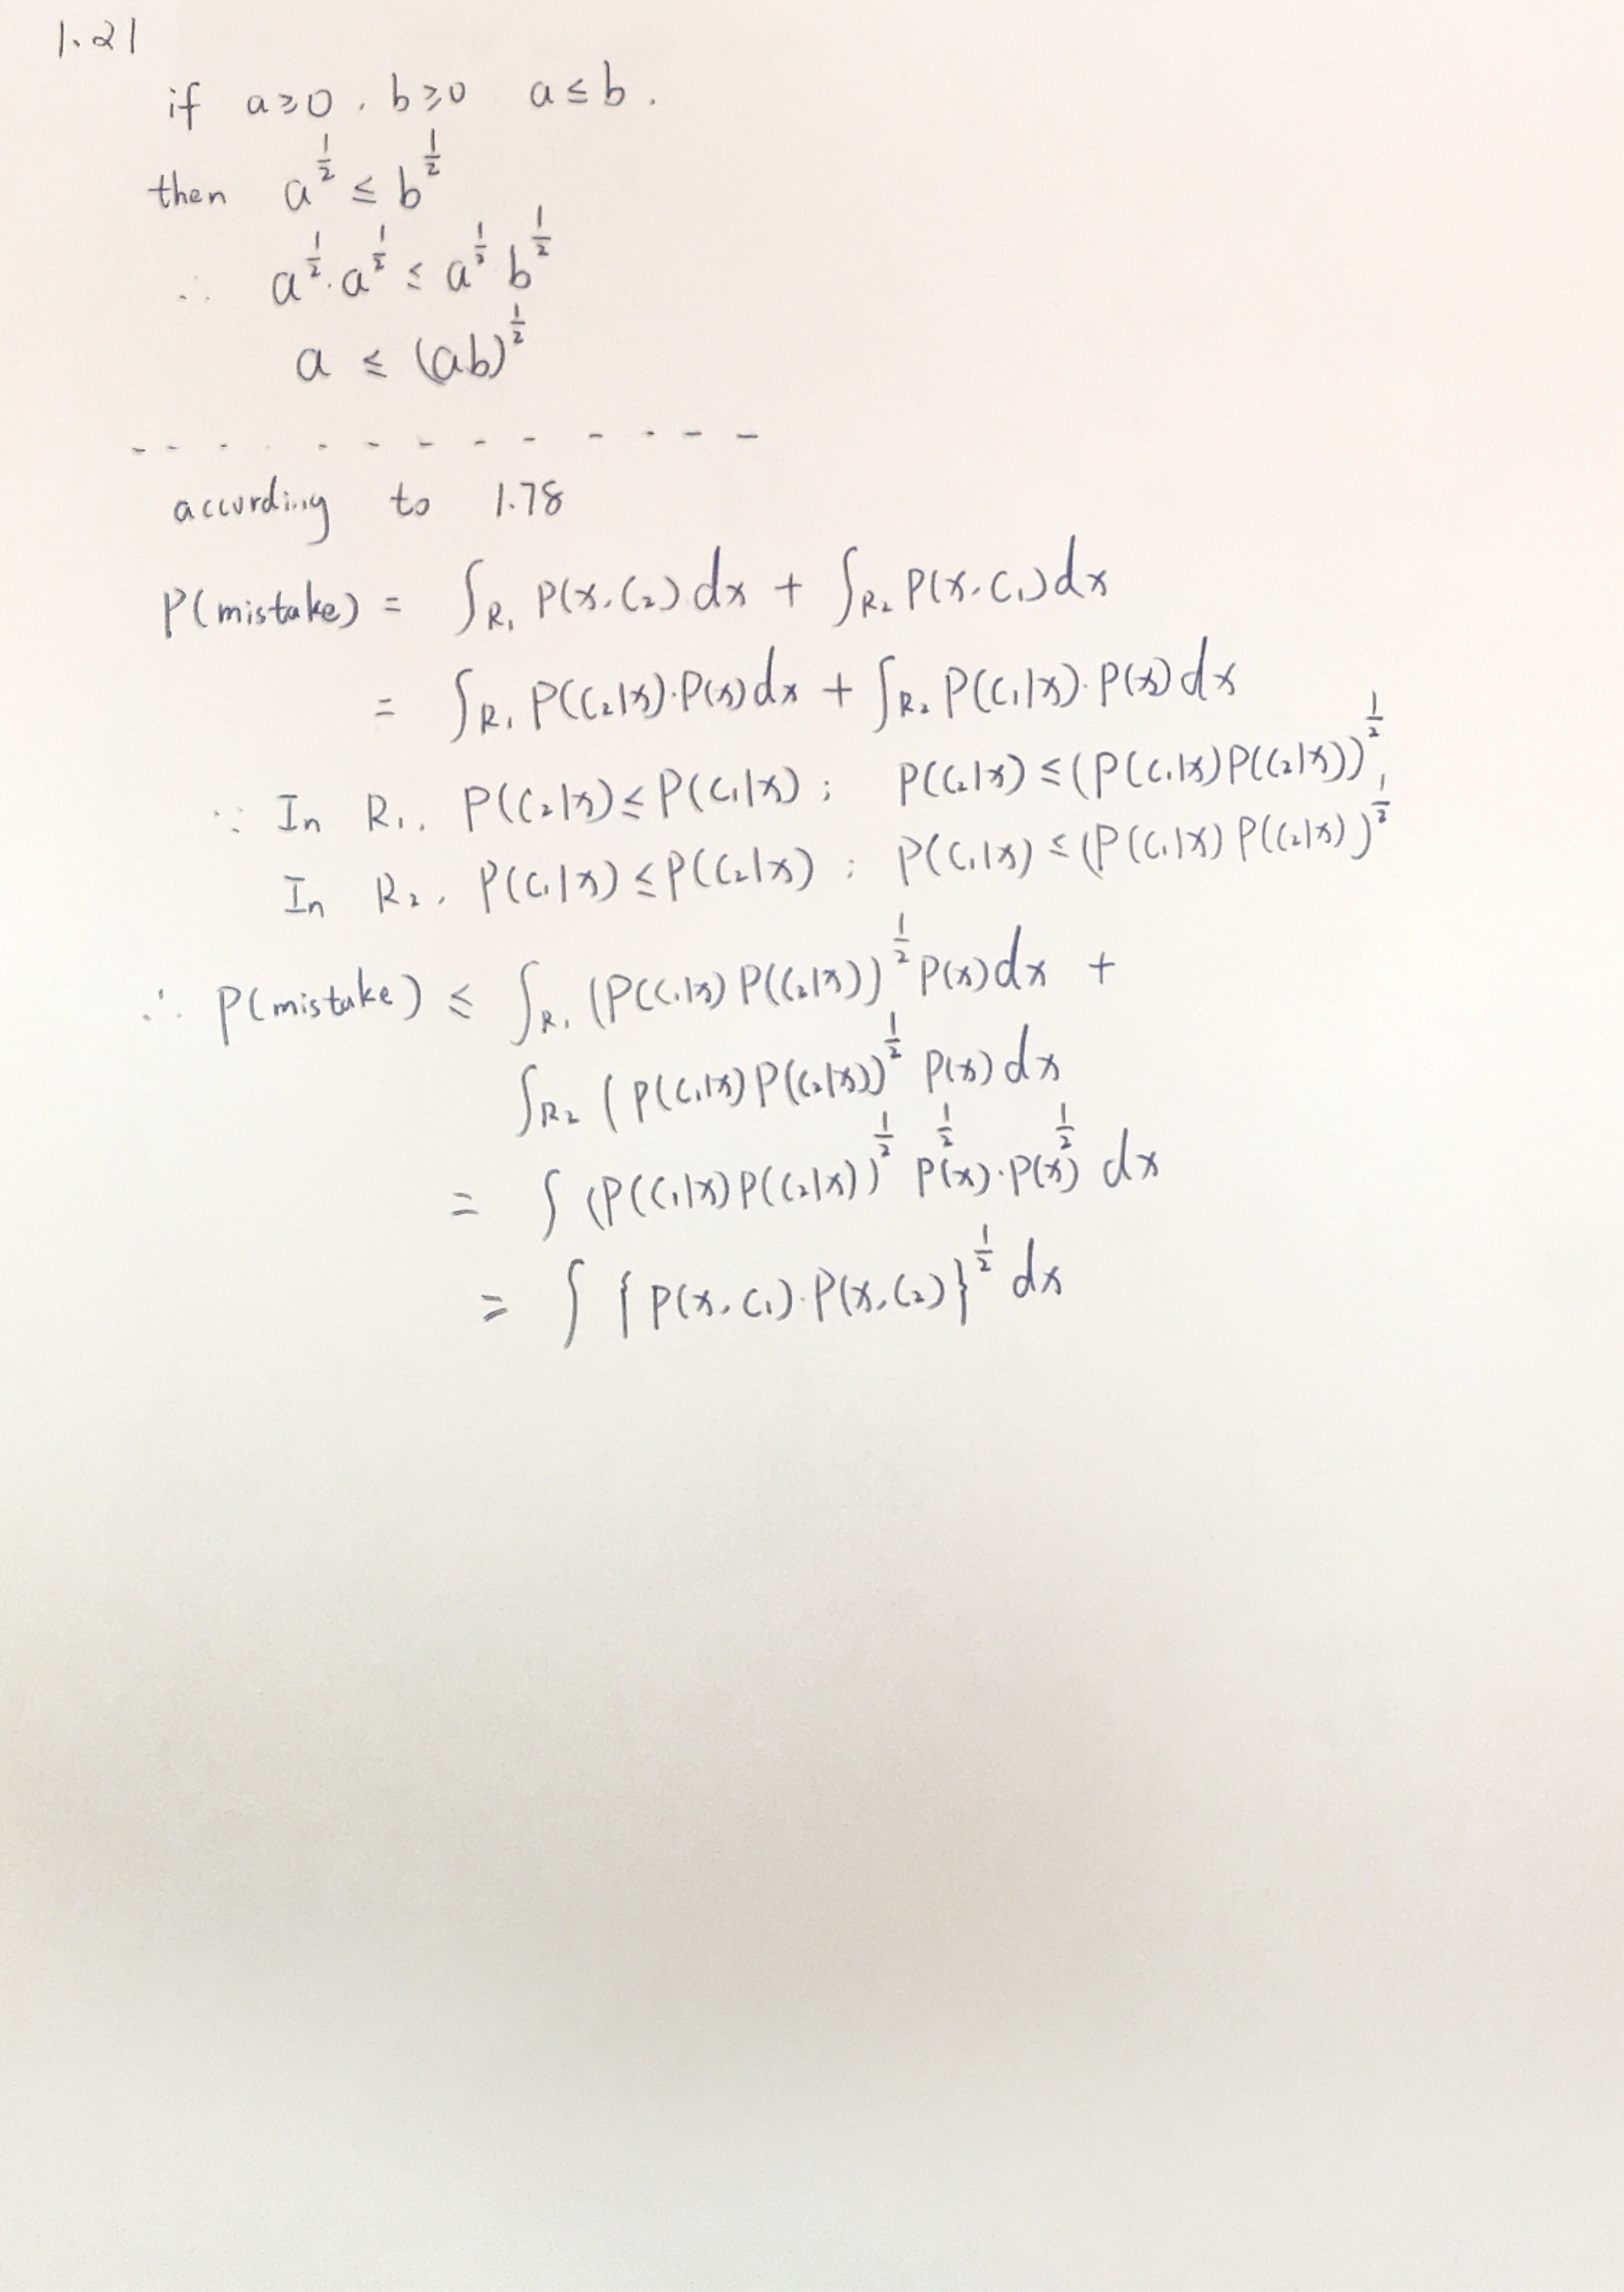 1.21
if a≥0, b≥0 a≤b.
then a^{1/2} ≤ b^{1/2}
∴ a^{1/2}·a^{1/2} ≤ a^{1/2} b^{1/2}
a ≤ (ab)^{1/2}
according to 1.78
P(mistake) = ∫_{R₁} P(x,C₂)dx + ∫_{R₂} P(x,C₁)dx
= ∫_{R₁} P(C₂|x)·P(x)dx + ∫_{R₂} P(C₁|x)·P(x)dx
∵ In R₁, P(C₂|x)≤P(C₁|x); P(C₂|x)≤(P(C₁|x)P(C₂|x))^{1/2}
In R₂, P(C₁|x)≤P(C₂|x); P(C₁|x)≤(P(C₁|x)P(C₂|x))^{1/2}
∴ P(mistake) ≤ ∫_{R₁} (P(C₁|x)P(C₂|x))^{1/2} P(x)dx +
∫_{R₂} (P(C₁|x)P(C₂|x))^{1/2} P(x)dx
= ∫ (P(C₁|x)P(C₂|x))^{1/2} P(x)^{1/2}·P(x)^{1/2} dx
= ∫ {P(x,C₁)·P(x,C₂)}^{1/2} dx